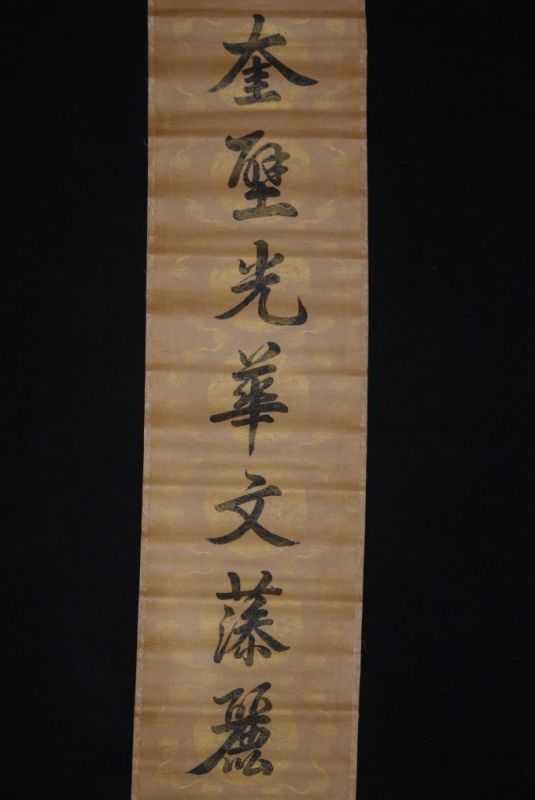 奎壁光華文藻麗